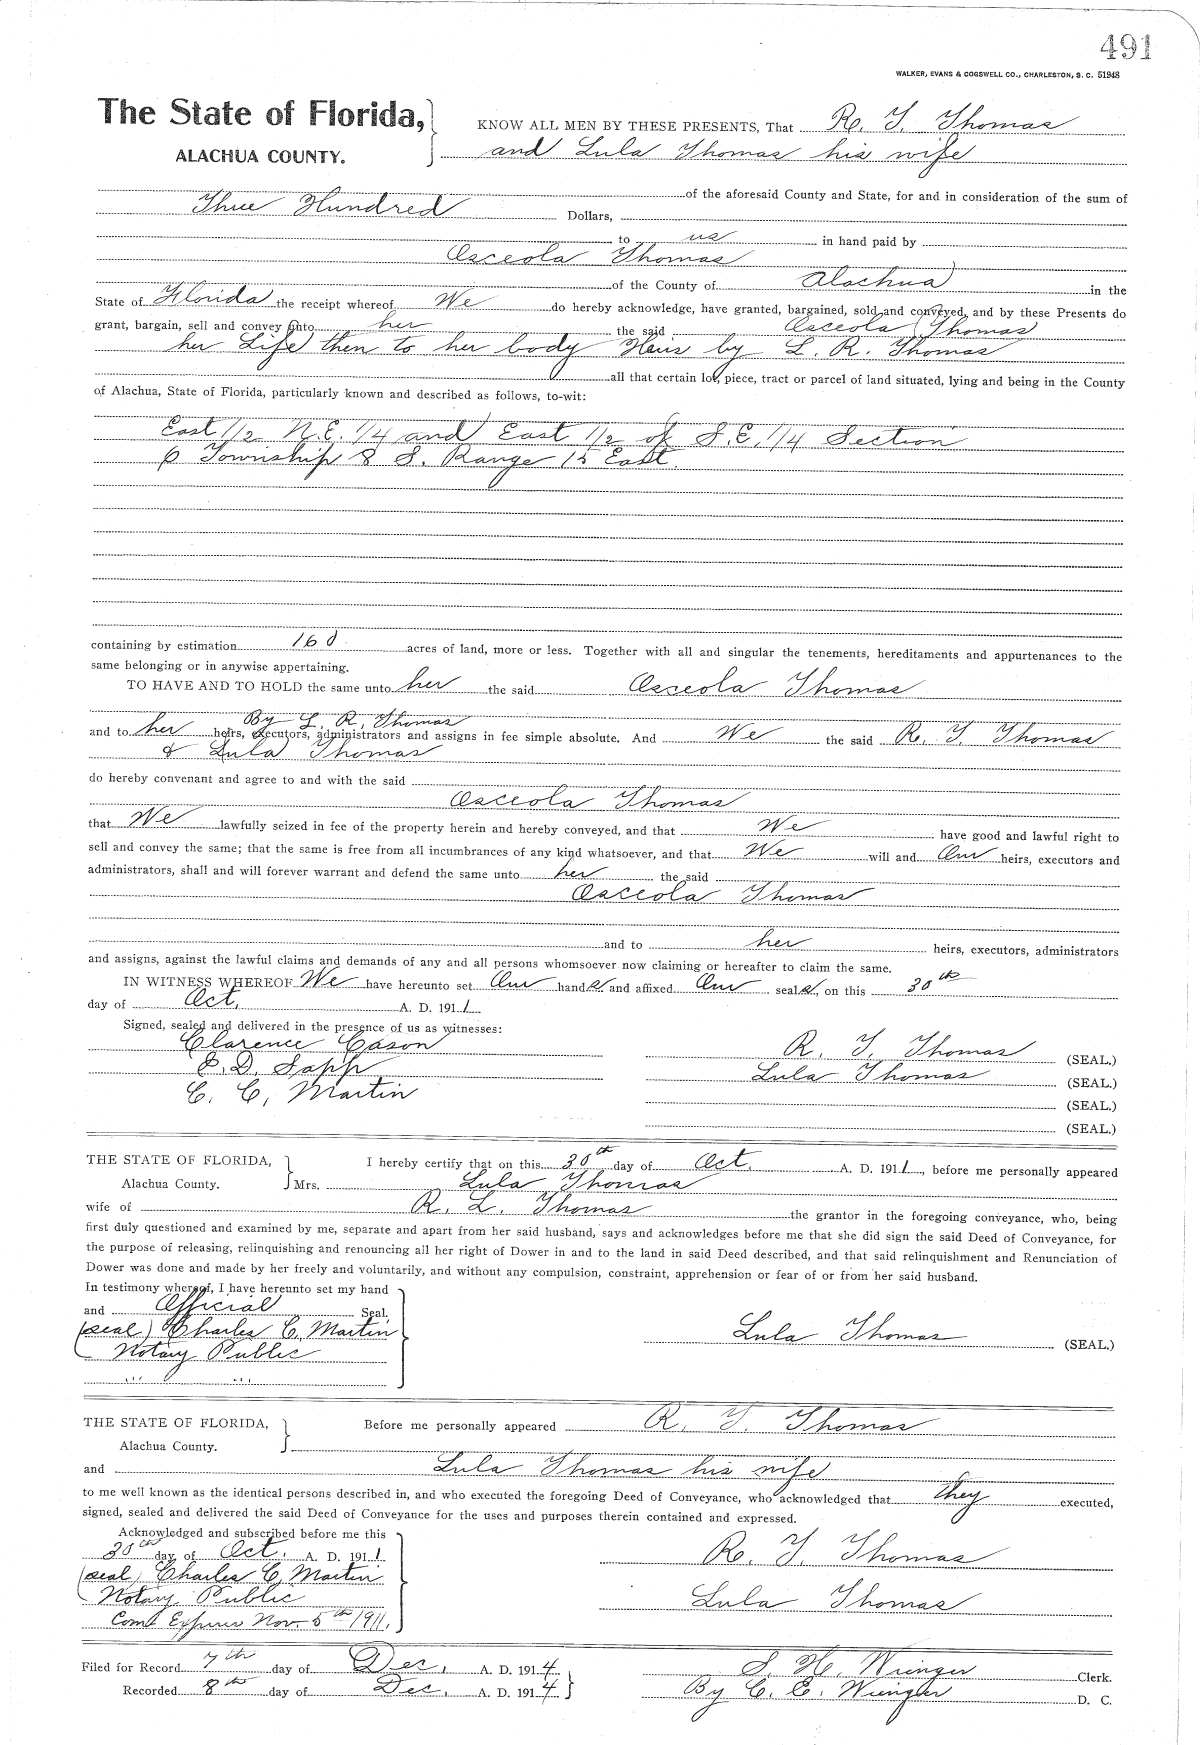 491
WALKER, EVANS & COGSWELL CO., CHARLESTON, S. C. 51948
The State of Florida,
ALACHUA COUNTY.
KNOW ALL MEN BY THESE PRESENTS, That R. T. Thomas
and Lula Thomas his wife
of the aforesaid County and State, for and in consideration of the sum of
Three Hundred Dollars,
to us in hand paid by
Osceola Thomas
of the County of Alachua in the
State of Florida the receipt whereof We do hereby acknowledge, have granted, bargained, sold and conveyed, and by these Presents do
grant, bargain, sell and convey unto her the said Osceola Thomas
her Life then to her body Heirs by L. R. Thomas
all that certain lot, piece, tract or parcel of land situated, lying and being in the County
of Alachua, State of Florida, particularly known and described as follows, to-wit:
East 1/2 N.E. 1/4 and East 1/2 of S.E. 1/4 Section
6 Township 8 S. Range 15 East.
containing by estimation 160 acres of land, more or less. Together with all and singular the tenements, hereditaments and appurtenances to the
same belonging or in anywise appertaining.
TO HAVE AND TO HOLD the same unto her the said Osceola Thomas
By L. R. Thomas
and to her heirs, executors, administrators and assigns in fee simple absolute. And We the said R. T. Thomas
& Lula Thomas
do hereby convenant and agree to and with the said
Osceola Thomas
that We lawfully seized in fee of the property herein and hereby conveyed, and that We have good and lawful right to
sell and convey the same; that the same is free from all incumbrances of any kind whatsoever, and that We will and Our heirs, executors and
administrators, shall and will forever warrant and defend the same unto her the said
Osceola Thomas
and to her heirs, executors, administrators
and assigns, against the lawful claims and demands of any and all persons whomsoever now claiming or hereafter to claim the same.
IN WITNESS WHEREOF We have hereunto set Our hands and affixed Our seals, on this 30th
day of Oct. A. D. 1911
Signed, sealed and delivered in the presence of us as witnesses:
Clarence Cason
E. D. Sapp
C. C. Martin
R. T. Thomas (SEAL.)
Lula Thomas (SEAL.)
(SEAL.)
(SEAL.)
THE STATE OF FLORIDA,
Alachua County.
I hereby certify that on this 30th day of Oct. A. D. 1911, before me personally appeared
Mrs. Lula Thomas
wife of R. L. Thomas the grantor in the foregoing conveyance, who, being
first duly questioned and examined by me, separate and apart from her said husband, says and acknowledges before me that she did sign the said Deed of Conveyance, for
the purpose of releasing, relinquishing and renouncing all her right of Dower in and to the land in said Deed described, and that said relinquishment and Renunciation of
Dower was done and made by her freely and voluntarily, and without any compulsion, constraint, apprehension or fear of or from her said husband.
In testimony whereof, I have hereunto set my hand
and Official Seal.
(seal) Charles C. Martin
Notary Public
Lula Thomas (SEAL.)
THE STATE OF FLORIDA,
Alachua County.
Before me personally appeared R. T. Thomas
and Lula Thomas his wife
to me well known as the identical persons described in, and who executed the foregoing Deed of Conveyance, who acknowledged that they executed,
signed, sealed and delivered the said Deed of Conveyance for the uses and purposes therein contained and expressed.
Acknowledged and subscribed before me this
30th day of Oct. A. D. 1911.
(seal) Charles C. Martin
Notary Public
Com Expires Nov. 5th 1911.
R. T. Thomas
Lula Thomas
Filed for Record 7th day of Dec. A. D. 1914
Recorded 8th day of Dec. A. D. 1914
S. H. Wienges Clerk.
By C. E. Wienges D. C.